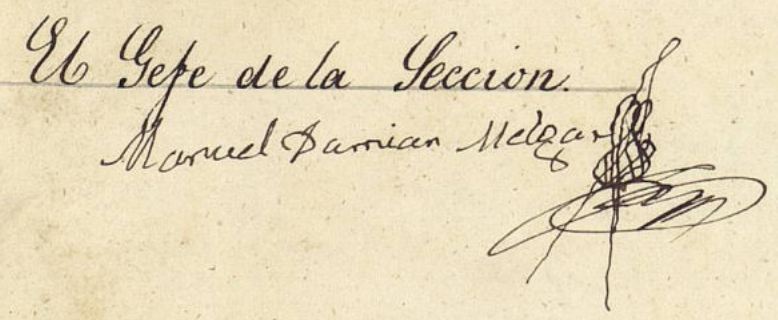 El Gefe de la Seccion.
Manuel Damian Melgar